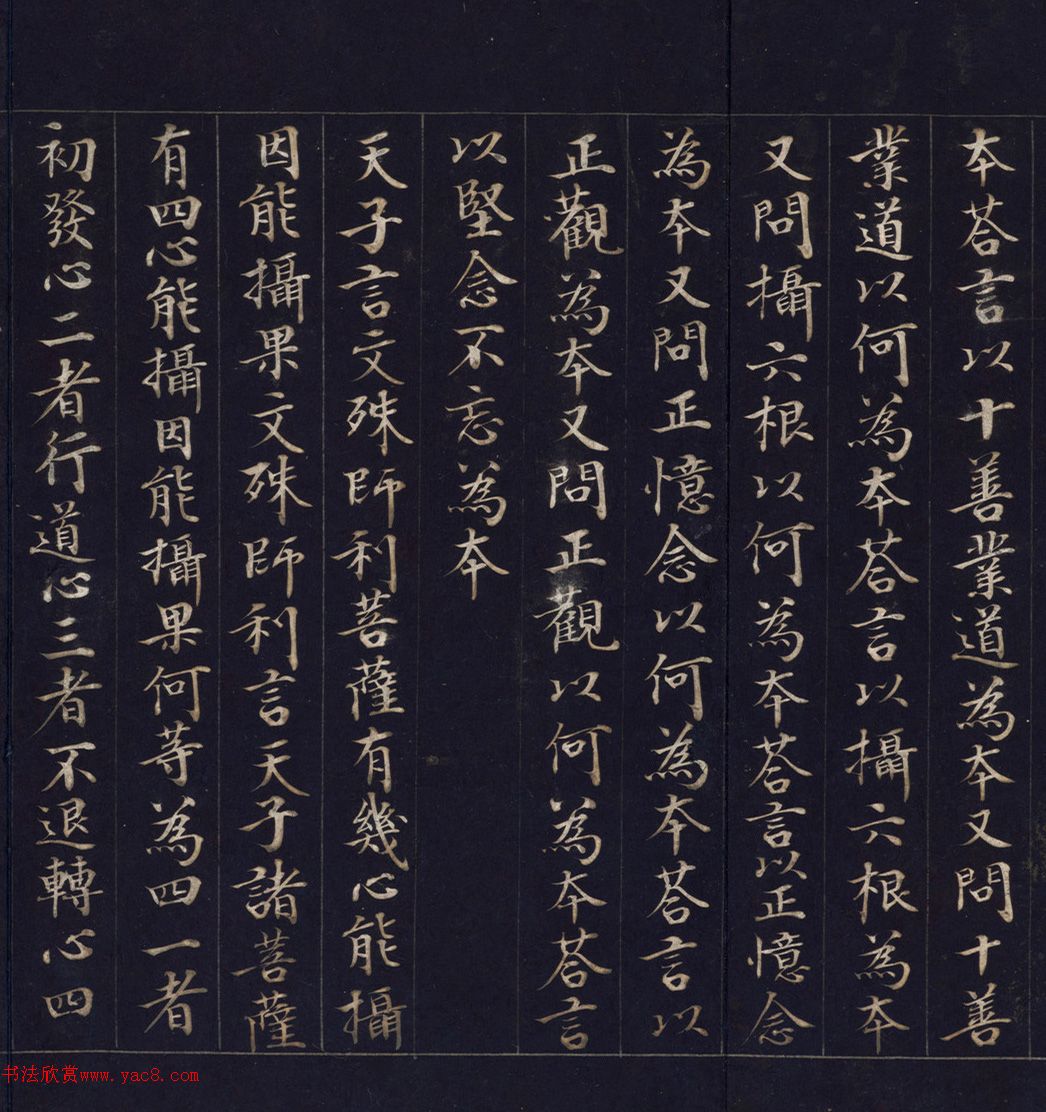 本荅言以十善業道為本又問十善
業道以何為本荅言以攝六根為本
又問攝六根以何為本荅言以正憶念
為本又問正憶念以何為本荅言以
正觀為本又問正觀以何為本荅言
以堅念不忘為本
天子言文殊師利菩薩有幾心能攝
因能攝果文殊師利言天子諸菩薩
有四心能攝因能攝果何等為四一者
初發心二者行道心三者不退轉心四
书法欣赏www.yac8.com